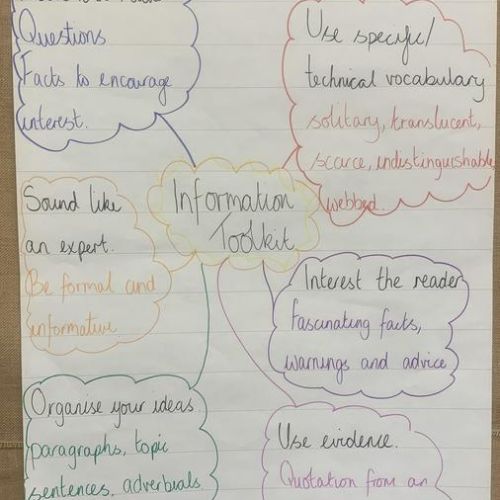 Questions
Facts to encourage
interest.
Use specific/
technical vocabulary
solitary, translucent,
scarce, indistinguishable,
webbed.
Information
Toolkit
Sound like
an expert.
Be formal and
informative
Interest the reader
Fascinating facts,
warnings and advice
Organise your ideas
paragraphs, topic
sentences, adverbials
Use evidence.
Quotation from an